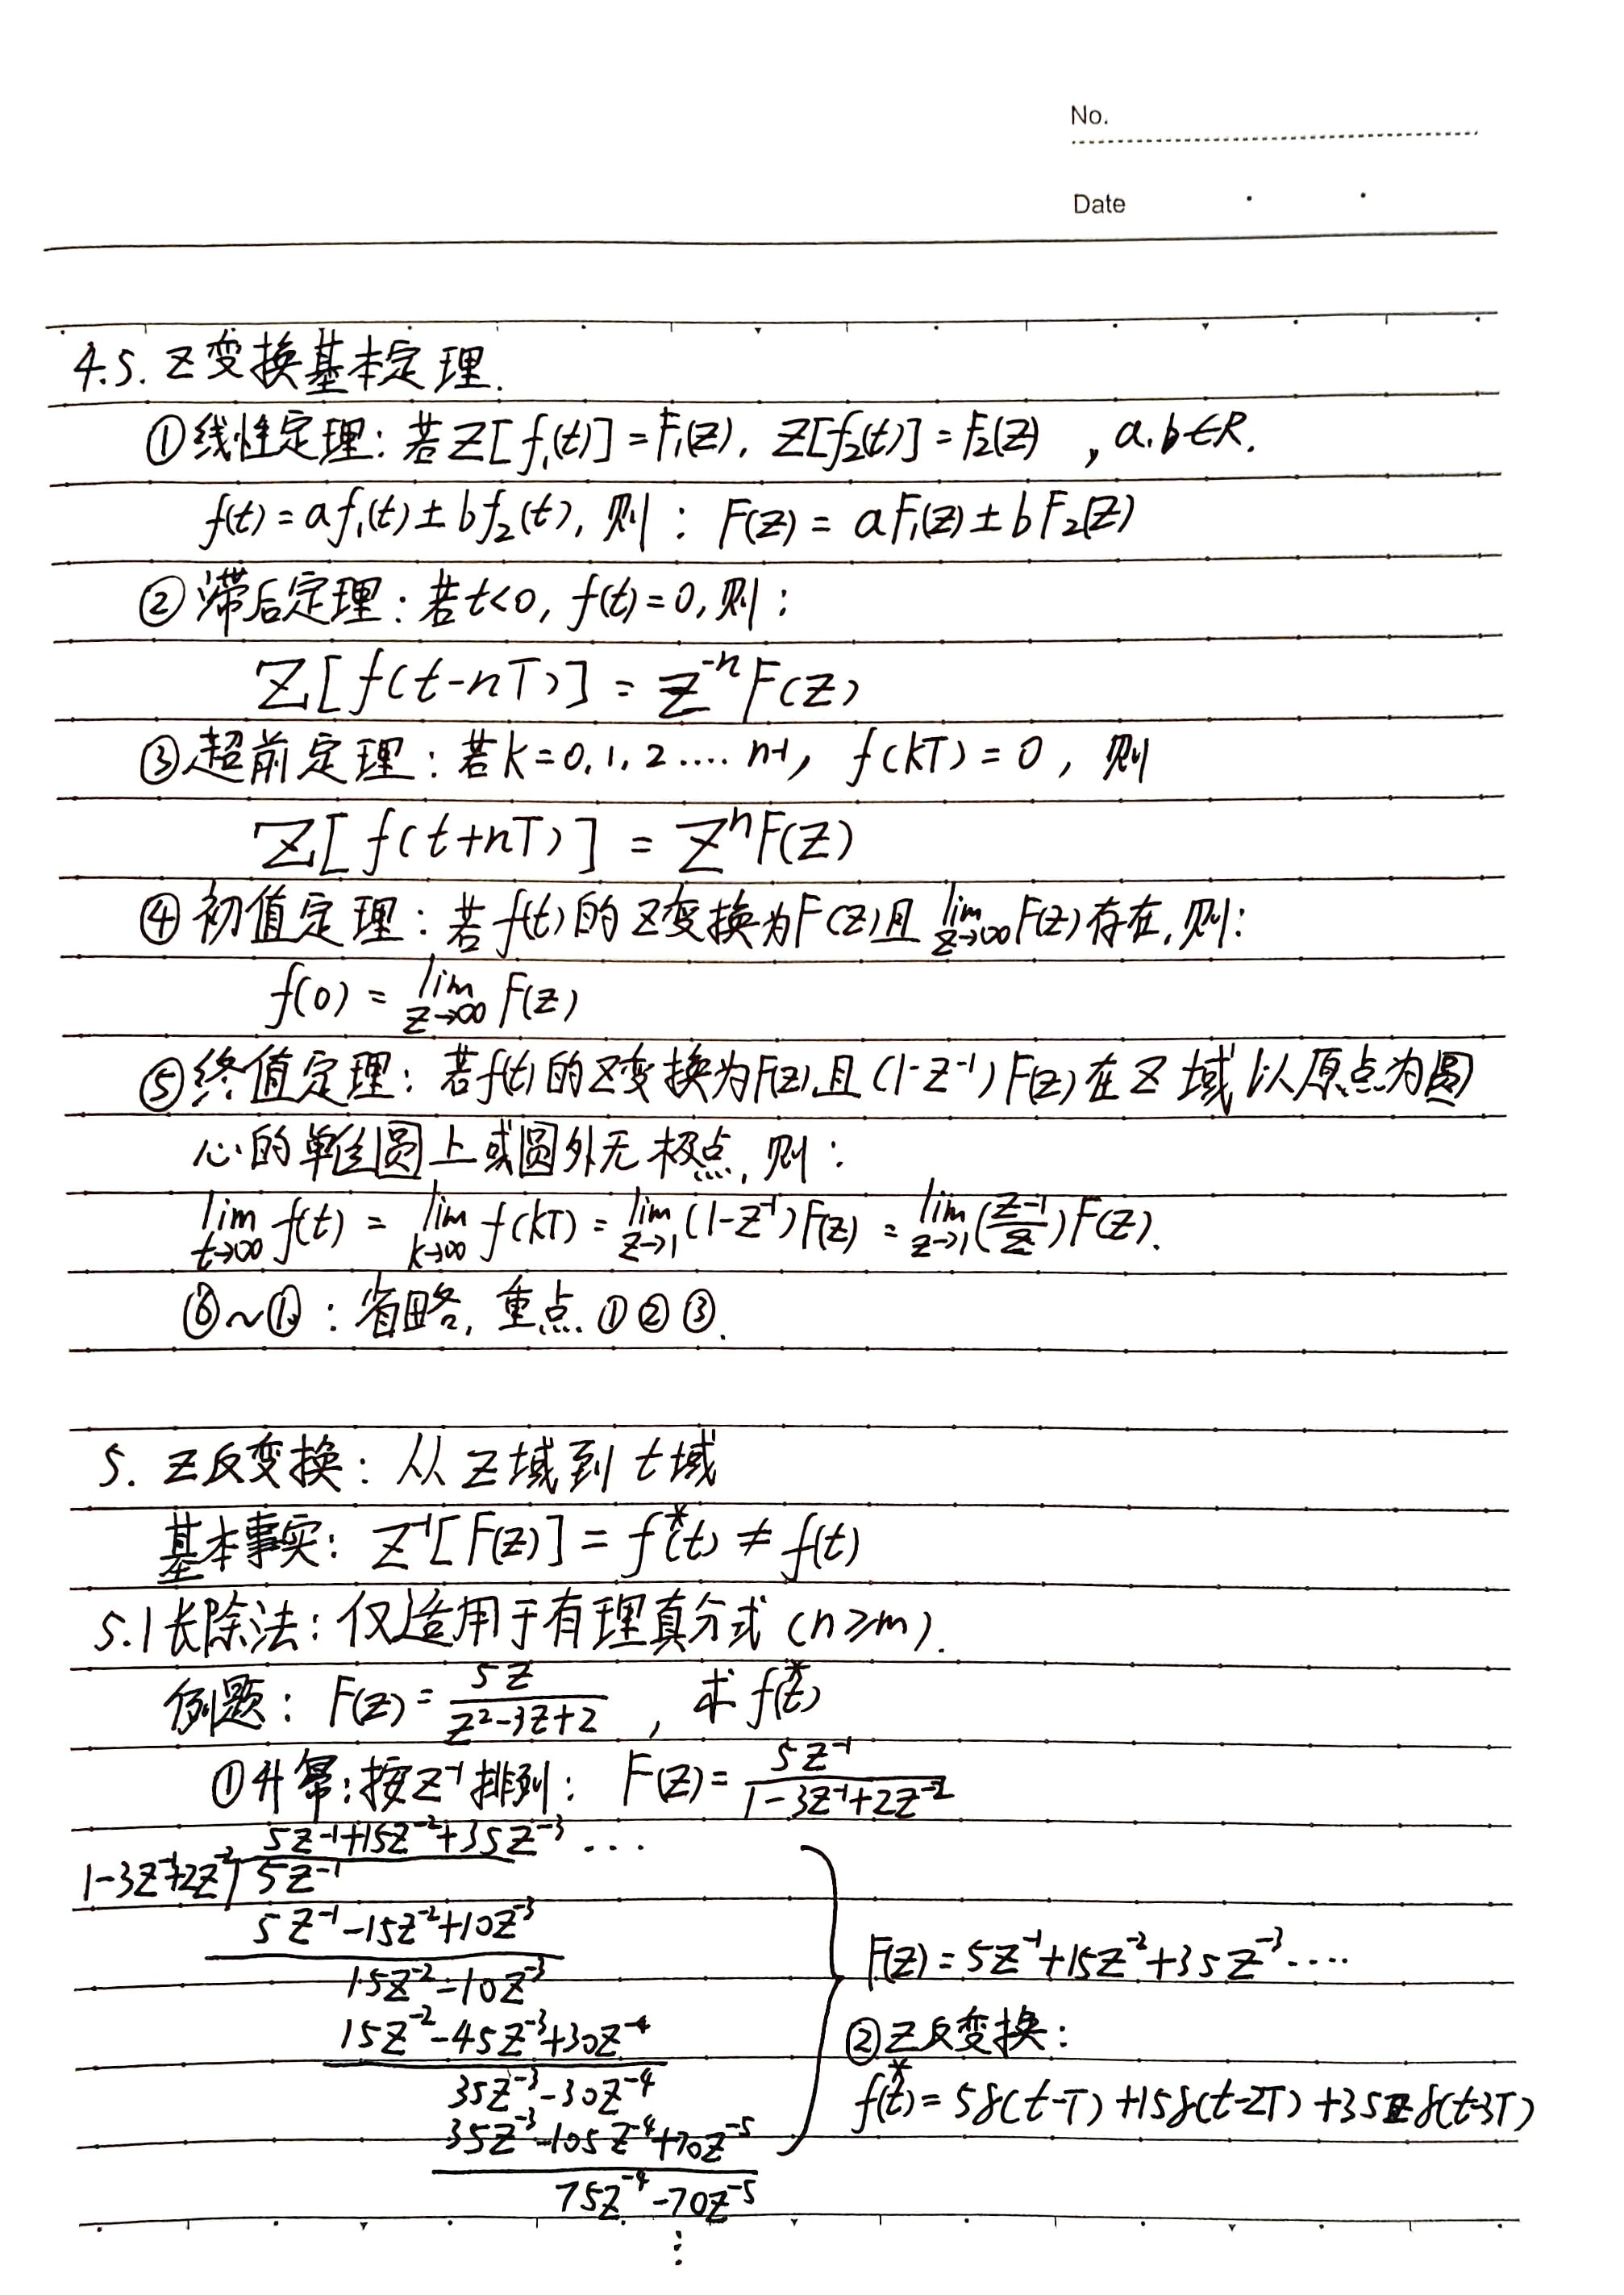 No.
Date
4.5. Z变换基本定理.
①线性定理: 若Z[f₁(t)]=F₁(Z), Z[f₂(t)]=F₂(Z) , a.b∈R.
f(t)=af₁(t)±bf₂(t), 则: F(Z)=aF₁(Z)±bF₂(Z)
②滞后定理: 若t<0, f(t)=0, 则:
Z[f(t-nT)]=Z⁻ⁿF(Z)
③超前定理: 若k=0,1,2....n-1, f(kT)=0, 则
Z[f(t+nT)]=ZⁿF(Z)
④初值定理: 若f(t)的Z变换为F(Z)且lim z→∞ F(Z)存在,则:
f(0)=lim z→∞ F(Z)
⑤终值定理: 若f(t)的Z变换为F(Z),且(1-Z⁻¹)F(Z)在Z域以原点为圆
心的单位圆上或圆外无极点,则:
lim t→∞ f(t)=lim k→∞ f(kT)=lim z→1 (1-Z⁻¹)F(Z)=lim z→1 (Z-1/Z)F(Z).
省略, 重点①②③.
5. Z反变换: 从Z域到t域
基本事实: Z⁻¹[F(Z)]=f*(t)≠f(t)
5.1长除法: 仅适用于有理真分式(n≥m).
例题: F(Z)=5Z/(Z²-3Z+2), 求f*(t)
①升幂:按Z⁻¹排列: F(Z)=5Z⁻¹/(1-3Z⁻¹+2Z⁻²)
5Z⁻¹+15Z⁻²+35Z⁻³...
1-3Z⁻¹+2Z⁻²)5Z⁻¹
5Z⁻¹-15Z⁻²+10Z⁻³
15Z⁻²-10Z⁻³
15Z⁻²-45Z⁻³+30Z⁻⁴
35Z⁻³-30Z⁻⁴
35Z⁻³-105Z⁻⁴+70Z⁻⁵
75Z⁻⁴-70Z⁻⁵
⋮
F(Z)=5Z⁻¹+15Z⁻²+35Z⁻³....
②Z反变换:
f*(t)=5δ(t-T)+15δ(t-2T)+35δ(t-3T)